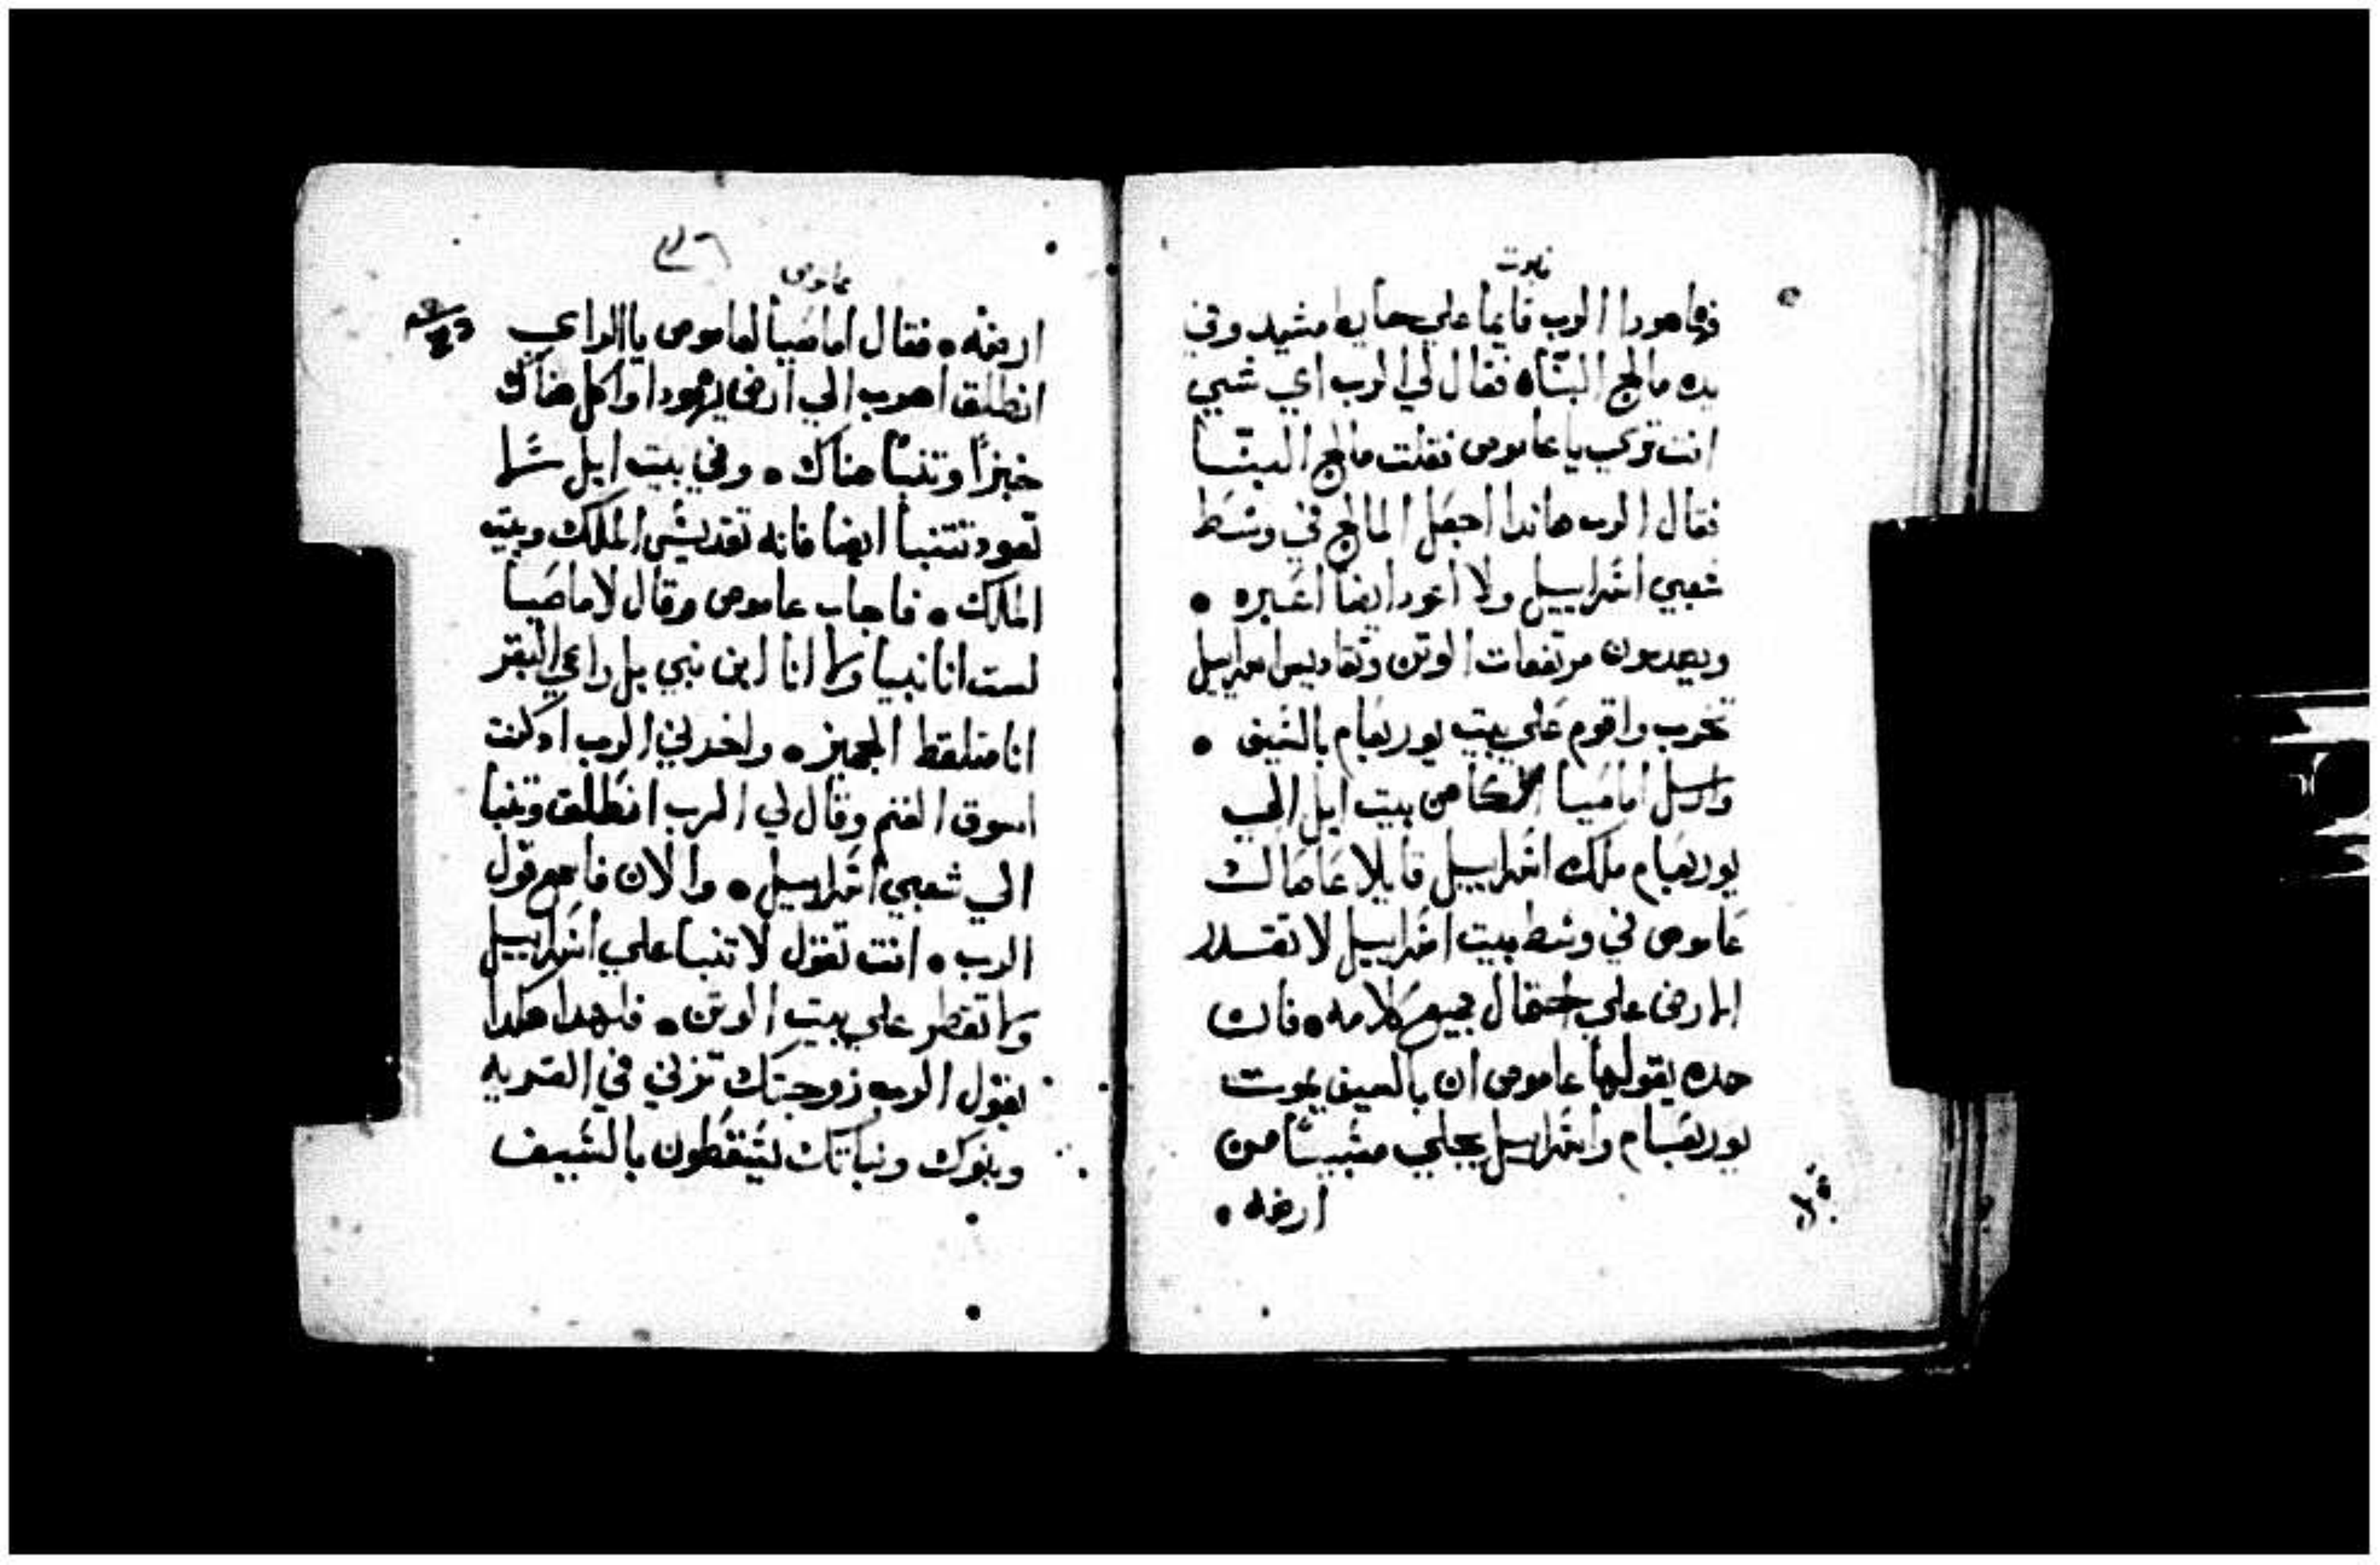 نبوت
فها هودا الرب قايما علي حايط مشيد وفي
يده مالج البنّاه فقال لي الرب اي شيي
انت تري يا عاموص فقلت مالج البنّا
فقال الرب هاندا اجعَل المالج في وسَط
شعبي اسَراييل ولا اعود ايضا اعَبره •
ويهدمون مرتفعات الوتن وتقاديس اسراييل
تخرب واقوم عَلي بيت يوربعَام بالسَيف •
وارسل اماصَيا الكاهن بيت ايل الي
يوربعَام ملك اسَراييل قايلا عَاصَاك
عَاموص في وسَط بيت اسَراييل لا تقدر
الارض علي احتمال جميع كلامه • فان
هده يقولها عاموص ان بالسيف يموت
يوربعَام واسَراييل يجلي مسَبيًا من
ارضه •
عاموص
ارضه • فقال اماصَيا لعاموص يا الراي
انطلق اهرب الي ارض يهودا واكل هناك
خبزًا وتنبا هناك • وفي بيت ايل لا
تعود تتنبا ايضا فانه تقديسَ الملك وبيت
الملك • فاجاب عاموص وقال لاماصَيا
لست انا نبيا ولا انا ابن نبي بل راعي البقر
انا متلقط الجميز • واخدني الرب اد كنت
اسوق الغنم وقال لي الرب انطلق وتنبا
الي شعبي اسَراييل • والان فاسمع قول
الرب • انت تقول لا تنبا علي اسَراييل
ولا تقطر علي بيت الوتن • فلهدا هكدا
يقول الرب زوجتك تزني في القريه
وبنوك وبناتك يسَقطون بالسَيف